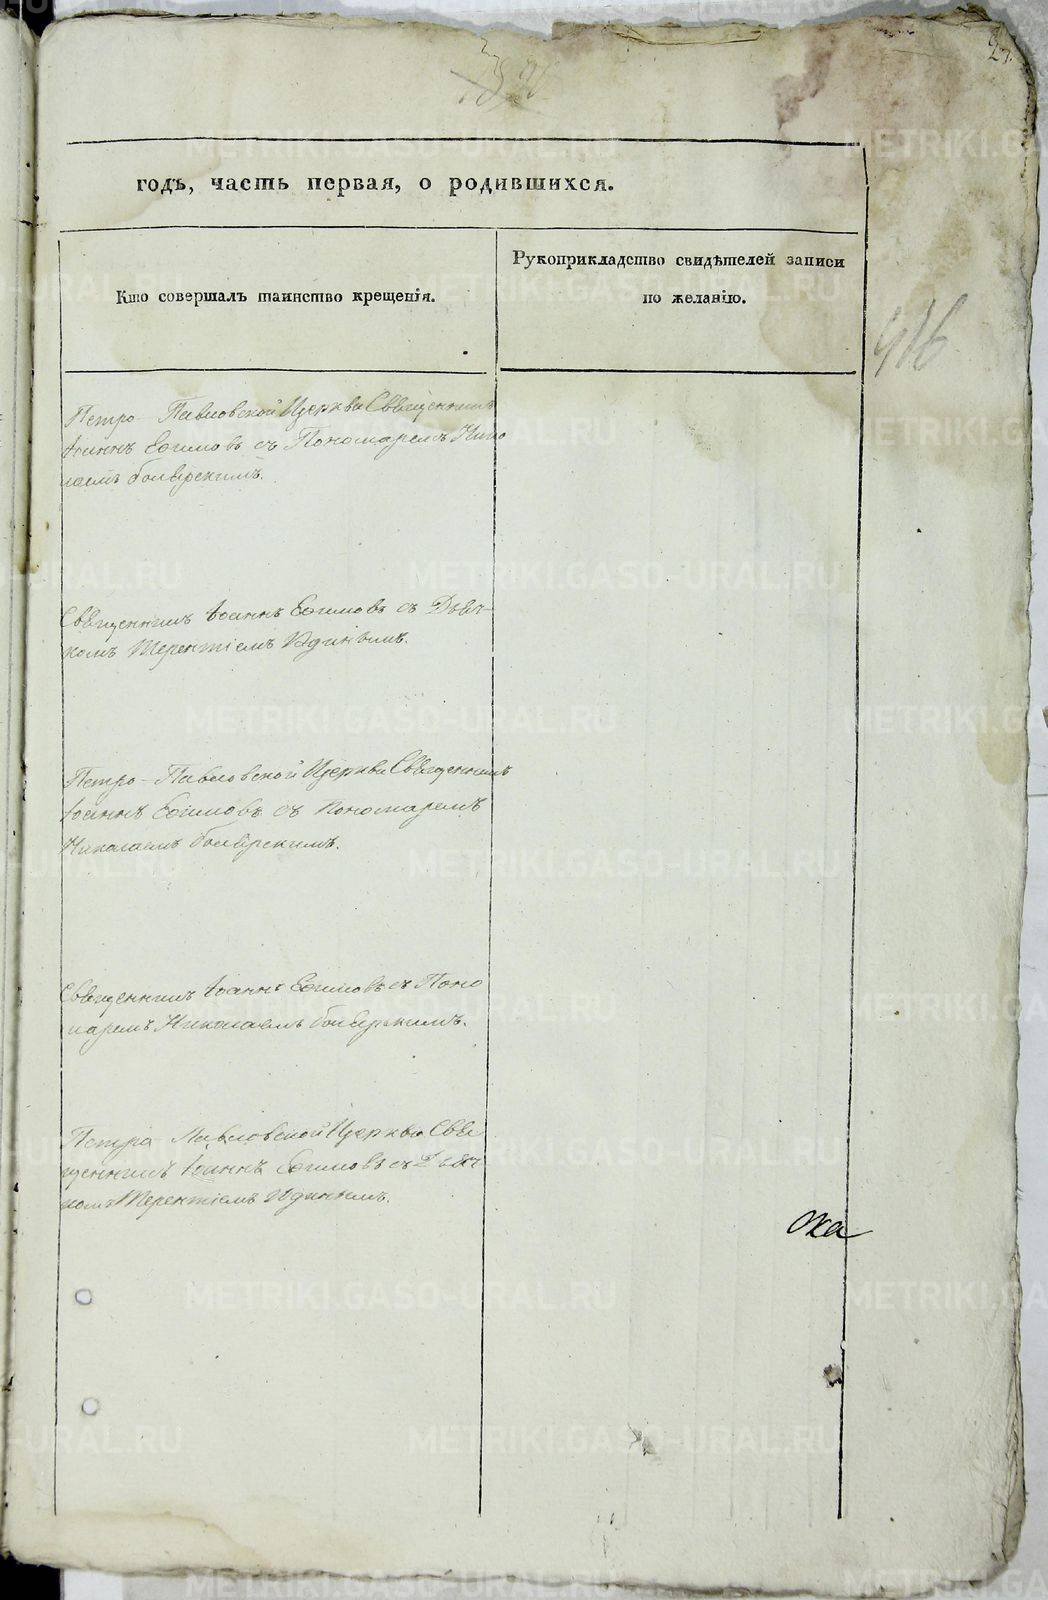 2.
годъ, часть первая, о родившихся.
Кто совершалъ таинство крещенія.
Рукоприкладство свидѣтелей записи
по желанію.
416
Петро-Павловской Церкви Священникъ
Іоаннъ Ефимовъ съ Пономаремъ Нико
лаемъ
Священникъ Іоаннъ Ефимовъ съ Дьяч-
комъ Терентіемъ
Петро-Павловской Церкви Священникъ
Іоаннъ Ефимовъ съ Пономаремъ
Николаемъ
Священникъ Іоаннъ Ефимовъ съ Поно
маремъ Николаемъ
Петра Павловской Церкви Свя
щенникъ Іоаннъ Ефимовъ съ Дьяч
комъ Терентіемъ
METRIKI.GASO-URAL.RU